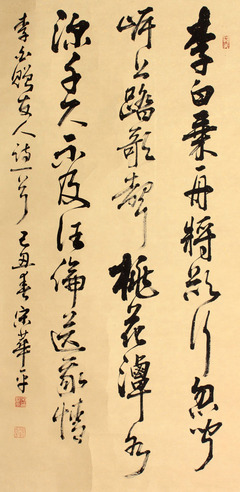 李白乘舟将欲行忽闻
岸上踏歌声桃花潭水
深千尺不及汪伦送我情
李白赠友人诗一首己丑春宋华平